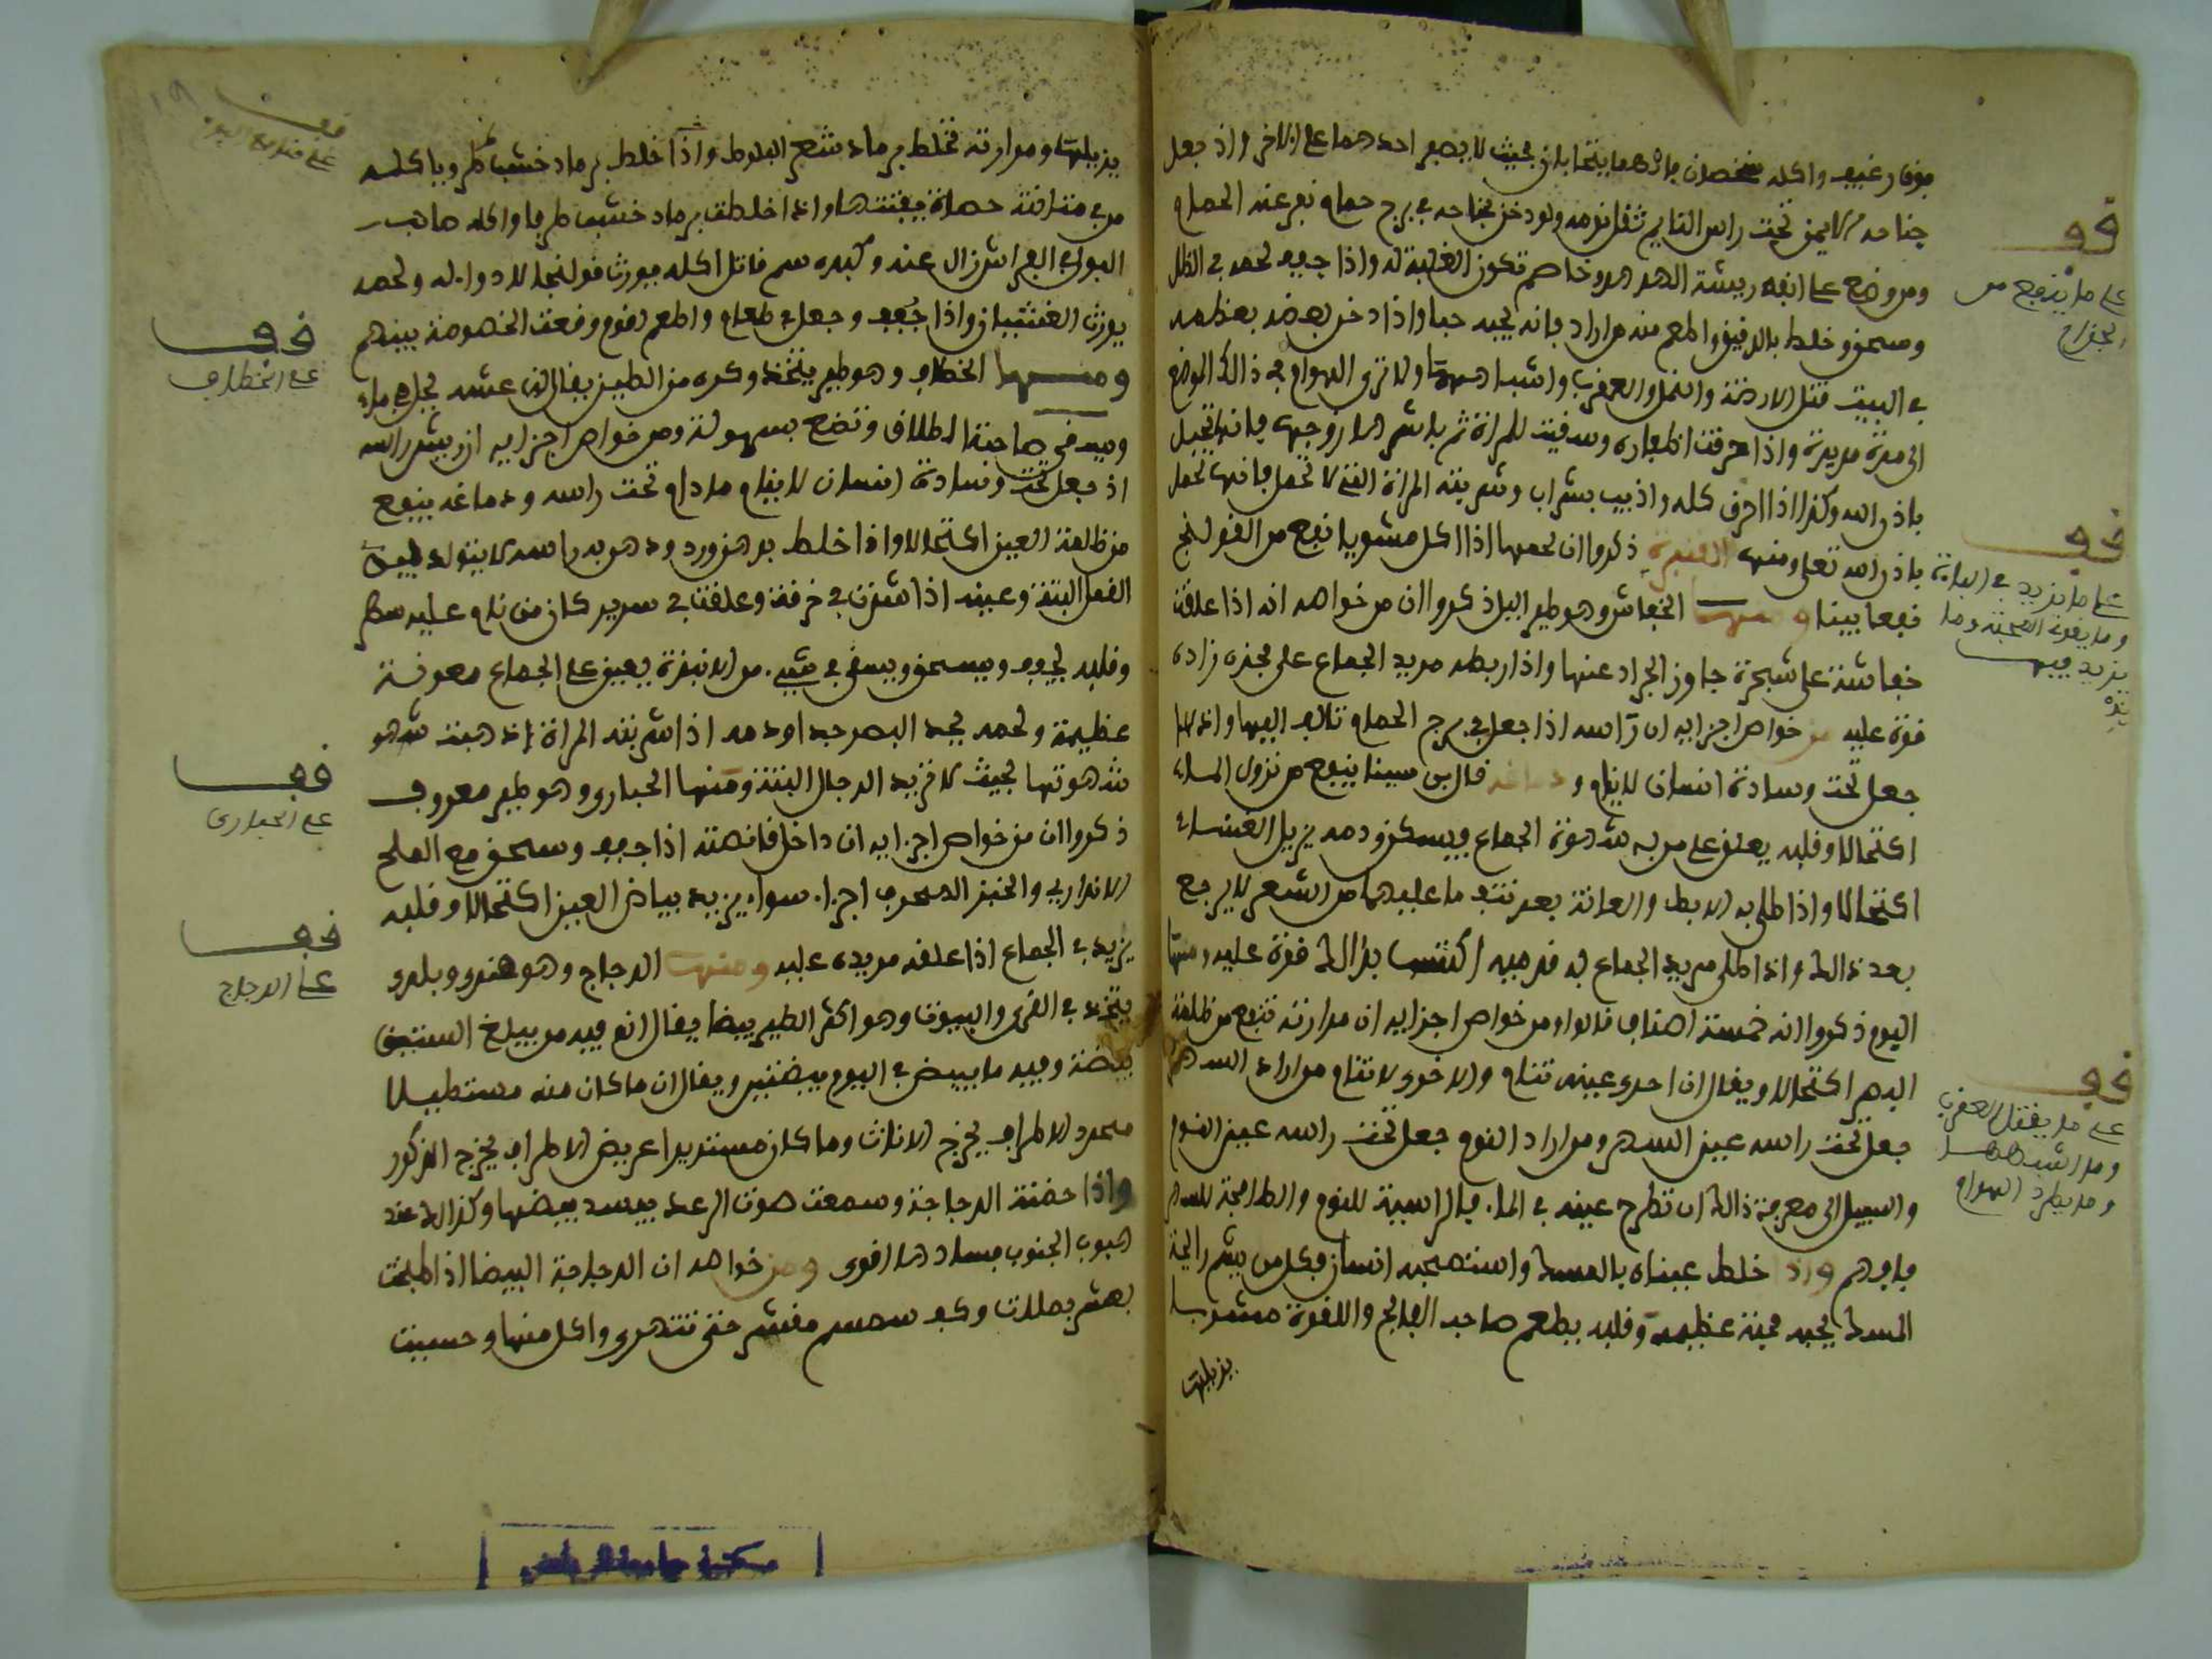 جناحه الايمن تحت راس النايم ثقل نومه ولو دخن بجناحه في برج حمام نفر عنه الحمام
ومن وضع على انفه ريشة الهدهد وخاصم تكون الغلبة له واذا جفف لحمه في الظل
وسحق وخلط بالدقيق واطعم منه من اراد فانه يحبه حبا واذا دخن بعض بعظمه
في البيت قتل الارضة والنمل والعقرب واشباهها ولا ترى الهوام في ذالك الموضع
الى مدة مديدة واذا احرقت اظفاره وسقيت للمراة ثم باشرها زوجها فانها تحبل
باذن الله وكذا اذا احرق كله واذيب بشراب وشربته المراة التي لا تحمل فانها تحمل
باذن الله تعلى ومنها القنبرة ذكروا ان لحمها اذا اكل مشويا نفع من القولنج
نفعا بينا ومنها الخفاش وهو طير اليل ذكروا ان من خواصه انه اذا علقت
خفاشة على شجرة جاوز الجراد عنها واذا ربطه مريد الجماع على فخذه زاده
قوة عليه من خواص اجزايه ان راسه اذا جعل في برج الحمام تالف اليها واذا
جعل تحت وسادة انسان لا ينام ودماغه قال بن سينا ينفع من نزول الماء
اكتحالا وقلبه يعلق على من به شهوة الجماع ويسكن ودمه يزيل الغشاء
اكتحالا واذا طلى به الابط والعانة بعد نتف ما عليهما من الشعر لا يرجع
بعد ذالك واذا طلى مريد الجماع به قدميه اكتسب بذالك قوة عليه ومنها
البوم ذكروا انه خمسة اصناف قالوا ومن خواص اجزايه ان مرارته تنفع من ظلمة
البصر اكتحالا ويقال ان احدى عينيه تنام والاخرى لا تنام من اراد السهر
جعل تحت راسه عين السهر ومن اراد النوم جعل تحت راسه عين النوم
والسبيل الى معرفة ذالك ان تطرح عينيه في الماء فالراسبة للنوم والطافحة للسهر
فافهم واذا خلط عيناه بالمسك واستصحبه انسان فكل من يشم رائحة
المسك يحبه محبة عظيمة وقلبه يطعم صاحب الفالج واللقوة مشويا
يزيلها
قف
على ما ينفع من
قف
على ما يزيد في الباءة
وما يقوي المحبة وما
يزيد فيها
قف
على ما يقتل العقرب
وما اشبهها
وما يطرد الهوام
يزيلها ومرارته تخلط برماد شجر البلوط واذا خلط برماد خشب طرفا باكله
البول في الفراش زال عنه وكبده سم قاتل اكله يورث قولنجا لا دواء له ولحمه
يورث الغثيان واذا جفف وجعل في طعام واطعم لقوم وقعت الخصومة بينهم
ومنها الخطاف وهو طير يتخذ وكره من الطين يقال ان عشه يحل في ماء
ويسقى صاحبة الطلاق وتضع بسهولة ومن خواص اجزايه ان ريش راسه
اذ جعل تحت وسادة انسان لا ينام ما دام تحت راسه ودماغه ينفع
من ظلمة العين اكتحالا واذا خلط بدهن ورد ودهن به راسه لا يتولد فيه
القمل البتة وعينه اذا شدت في خرقة وعلقت في سرير كان من نام عليه سهر
وقلبه يجفف ويسحق ويسقى في شيء من الانبذة يعين على الجماع معونة
عظيمة ولحمه يحد البصر جدا ودمه اذا شربته المراة اذهبت شهو
شهوتها بحيث لا تريد الرجال البتة ومنها الحبارى وهو طير معروف
ذكروا ان من خواص اجزايه ان داخل قانصته اذا جفف وسحق مع الملح
الاندراني والخبز المحرق اجزاء سواء يزيد بياض العين اكتحالا وقلبه
يزيد في الجماع اذا علقه مريده عليه ومنها الدجاج وهو هندي وبلدي
يتخذ في القرى والبيوت وهو اكثر الطير بيضا يقال انه فيه من يبلغ الستين
بيضة وفيه ما يبيض في اليوم بيضتين ويقال ان ما كان منه مستطيلا
محدد الاطراف يخرج الاناث وما كان مستديرا عريض الاطراف يخرج الذكور
واذا حضنت الدجاجة وسمعت صوت الرعد يفسد بيضها وكذالك عند
هبوب الجنوب فسادها اقوى ومن خواصه ان الدجاجة البيضا اذا طبخت
بعشر بصلات وكف سمسم مقشر حتى تتهرى واكل منها وحسيت
قف
على منافع البوم
قف
على الخطاف
قف
على الحبارى
قف
على الدجاج
مكتبة جامعة الرياض